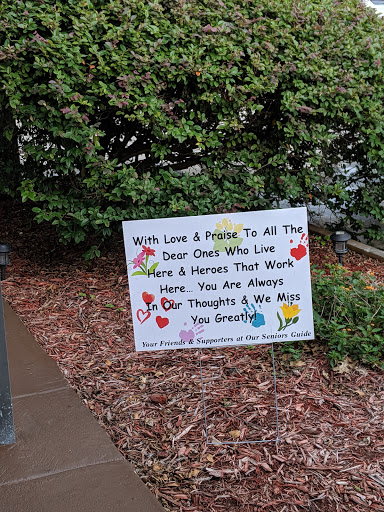 With Love & Praise To All The
Dear Ones Who Live
Here & Heroes That Work
Here... You Are Always
In Our Thoughts & We Miss
You Greatly!
Your Friends & Supporters at Our Seniors Guide